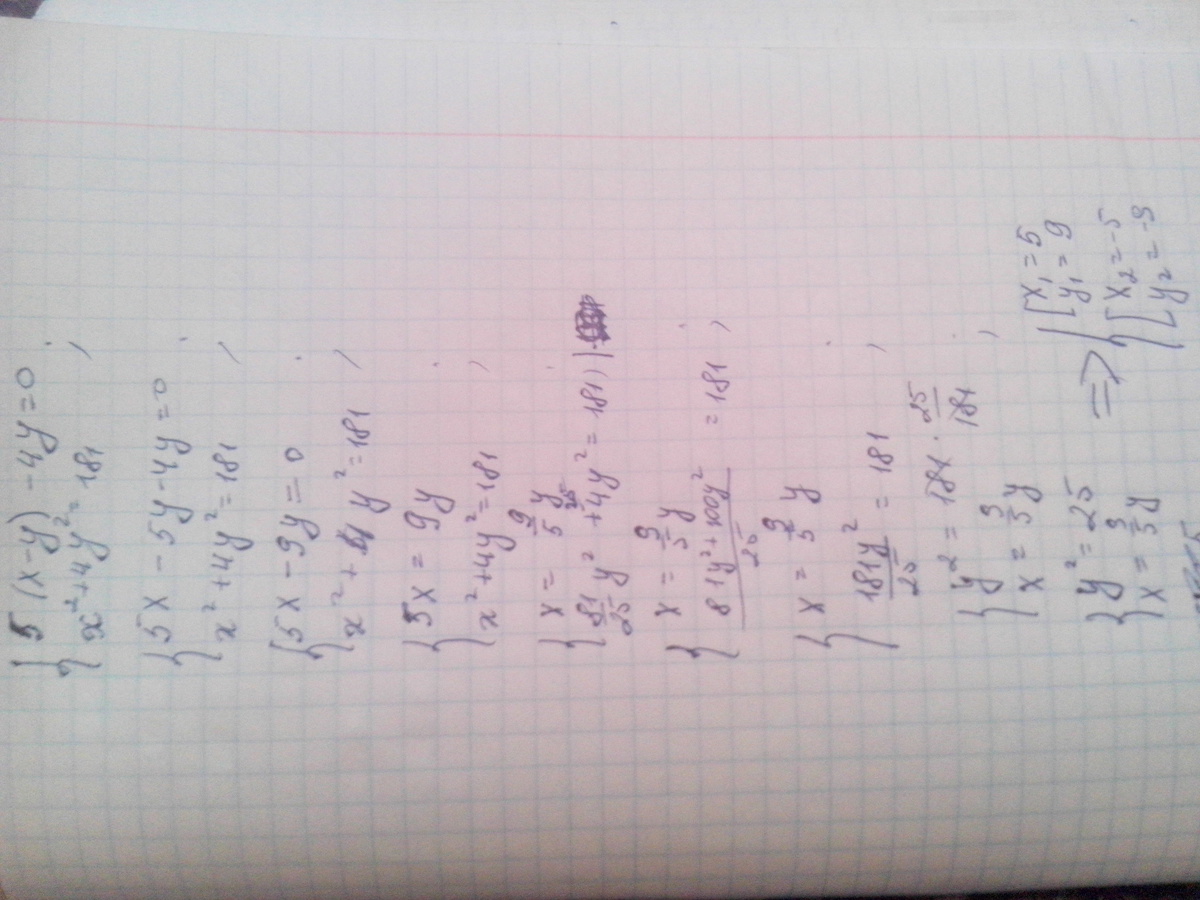 { 5(x-y) - 4y = 0
x² + 4y² = 181 ;
{ 5x - 5y - 4y = 0 ;
x² + 4y² = 181 ;
{ 5x - 9y = 0 ;
x² + 4y² = 181 ;
{ 5x = 9y ;
x² + 4y² = 181 ;
{ x = 9/5 y ;
81/25 y² + 4y² = 181 ;
{ x = 9/5 y ;
(81y² + 100y²)/25 = 181 ;
{ x = 9/5 y ;
181y²/25 = 181 ;
{ y² = 181 · 25/181 ;
x = 9/5 y
{ y² = 25
x = 9/5 y
=> { [ x₁ = 5
y₁ = 9
[ x₂ = -5
y₂ = -9